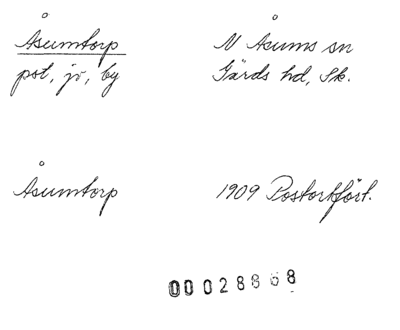 Åsumtorp
pst, jv, by
N Åsums sn
Gärds hd, Sk.
Åsumtorp
1909 Postortfört.
00028868